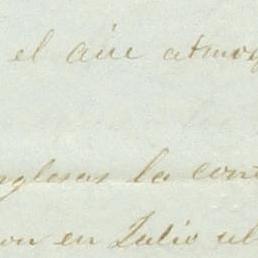 el aire atmos
nglesas la con
on en Julio ul